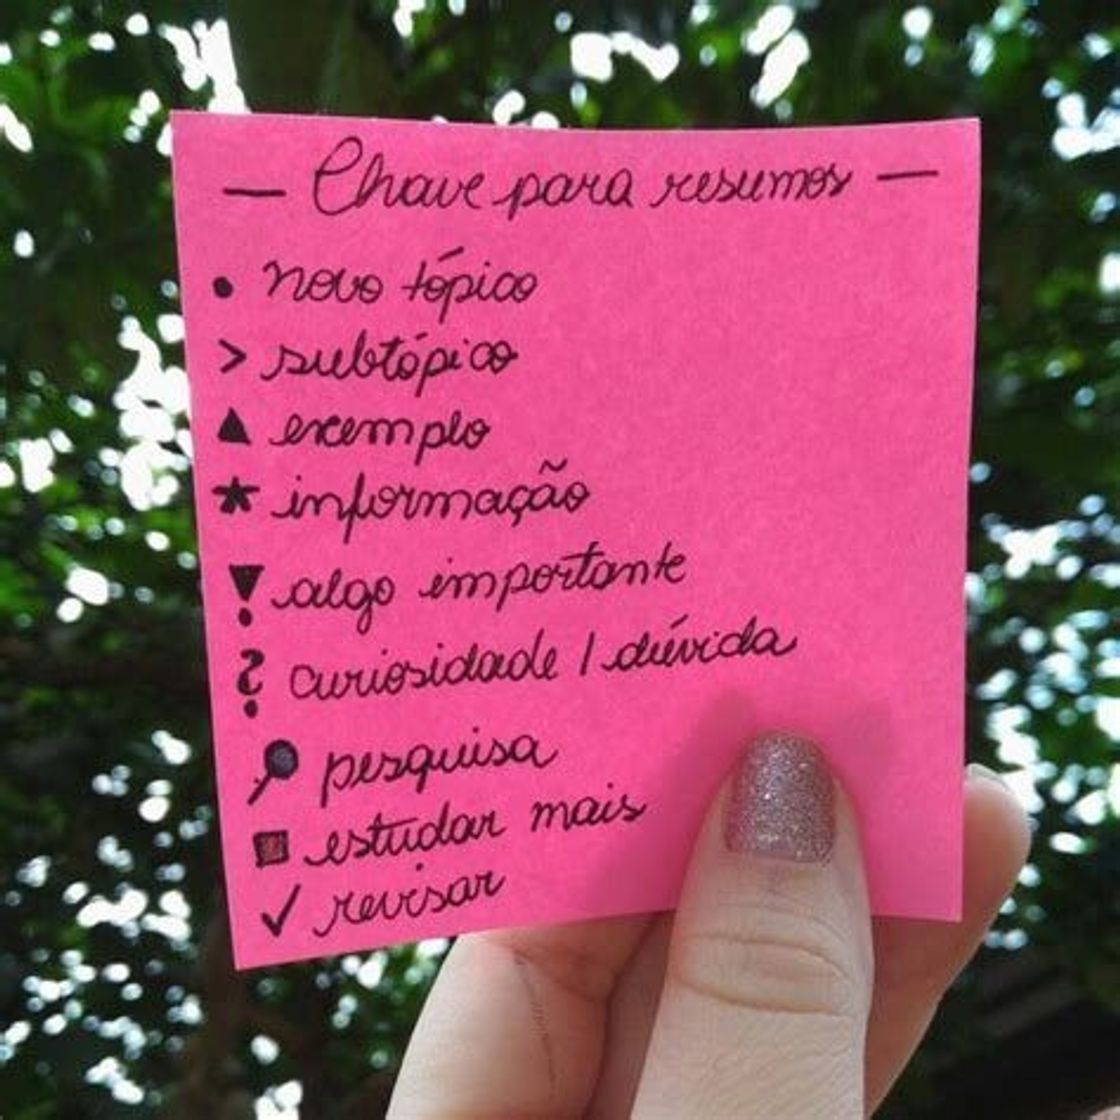 — Chave para resumos —
• novo tópico
> subtópico
▲ exemplo
* informação
! algo importante
? curiosidade / dúvida
🔍 pesquisa
■ estudar mais
✓ revisar